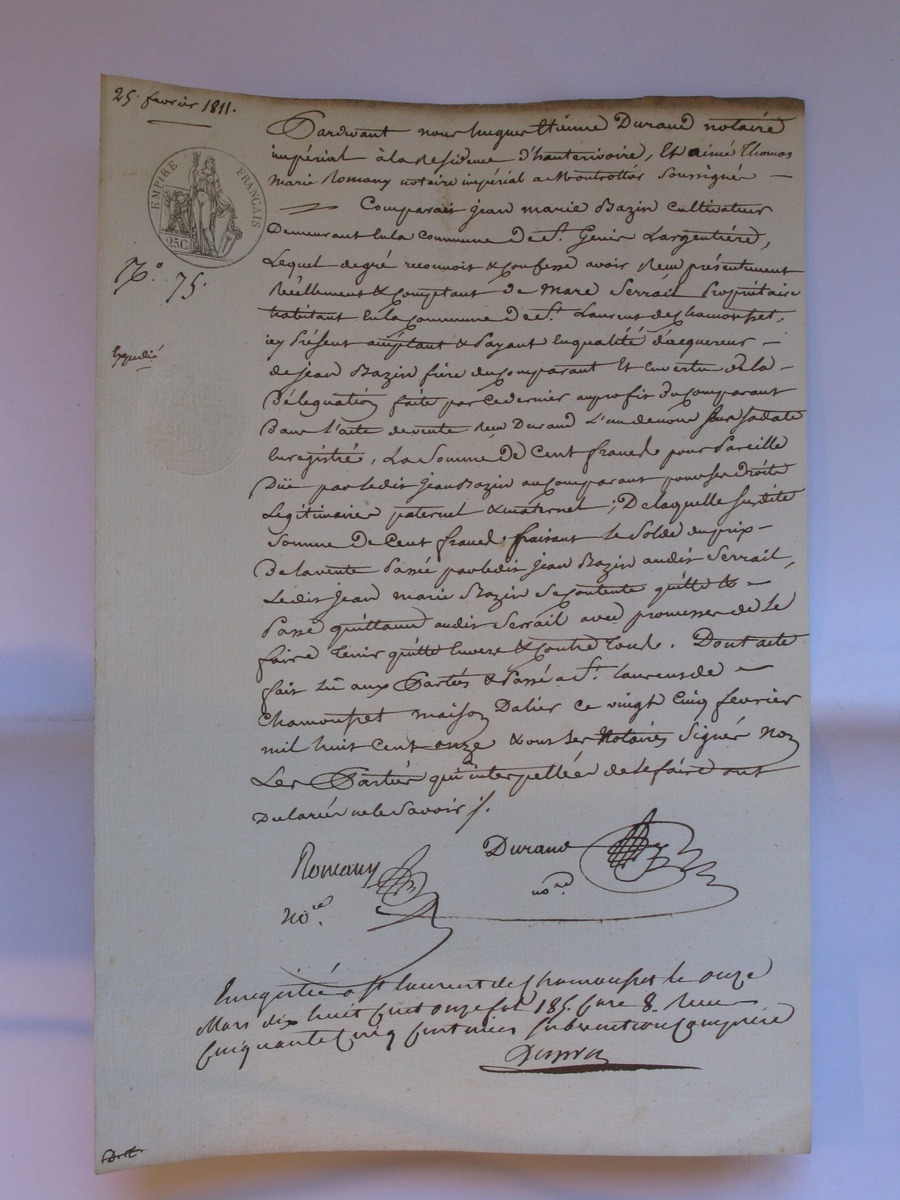 25. fevrier 1811.
EMPIRE FRANÇAIS
25C
N.o 75.
Expedié
Pardevant nous hugues Etienne Durand notaire
impérial à la Residence d'hauterivoire, Et aimé Thomas
Marie Romany notaire impérial a Montrottier Soussignés —
— Comparait jean marie Bazin Cultivateur
Demeurant En la Commune De St. Genis Largentière,
Lequel de gré reconnoit & Confesse avoir Recu présentement
Réellement & Comptant de Marc Serrail Propriétaire
habitant En la Commune De St. Laurent de Chamousset,
icy Présent acceptant & Payant En qualité d'acquereur —
de jean Bazin frère du Comparant Et En vertu de la —
Délégation faite par ce dernier au profit du Comparant
Dans l'acte de vente Reçu Durand L'un de nous Sous Sa date
Enregistré, La Somme De Cent francs pour Pareille
Düe par le dit jean Bazin au Comparant pour Ses Droits
Légitimaires paternel & maternel; De laquelle Susdite
Somme De Cent francs faisant le Solde du prix —
De la vente Passée par le dit jean Bazin au dit Serrail,
Le dit jean marie Bazin Se Contente quitte & —
Passe quittance au dit Serrail avec promesses de le
faire Tenir quitte Envers & Contre Tous. Dont acte
fait Lû aux Parties & Passé a St. Laurens de —
Chamousset maison Dalier ce vingt Cinq fevrier
mil huit Cent onze & ont Les Notaires Signés Non
Les Parties qui interpellées de le faire ont
Déclarés ne le Savoir ./.
Romany
no.re
Durand
no.re
Enregistré a St laurent de Chamousset le onze
Mars dix huit Cent onze fol 185. Case 8. Recu
Cinquante Cinq Centimes Subvention Comprise